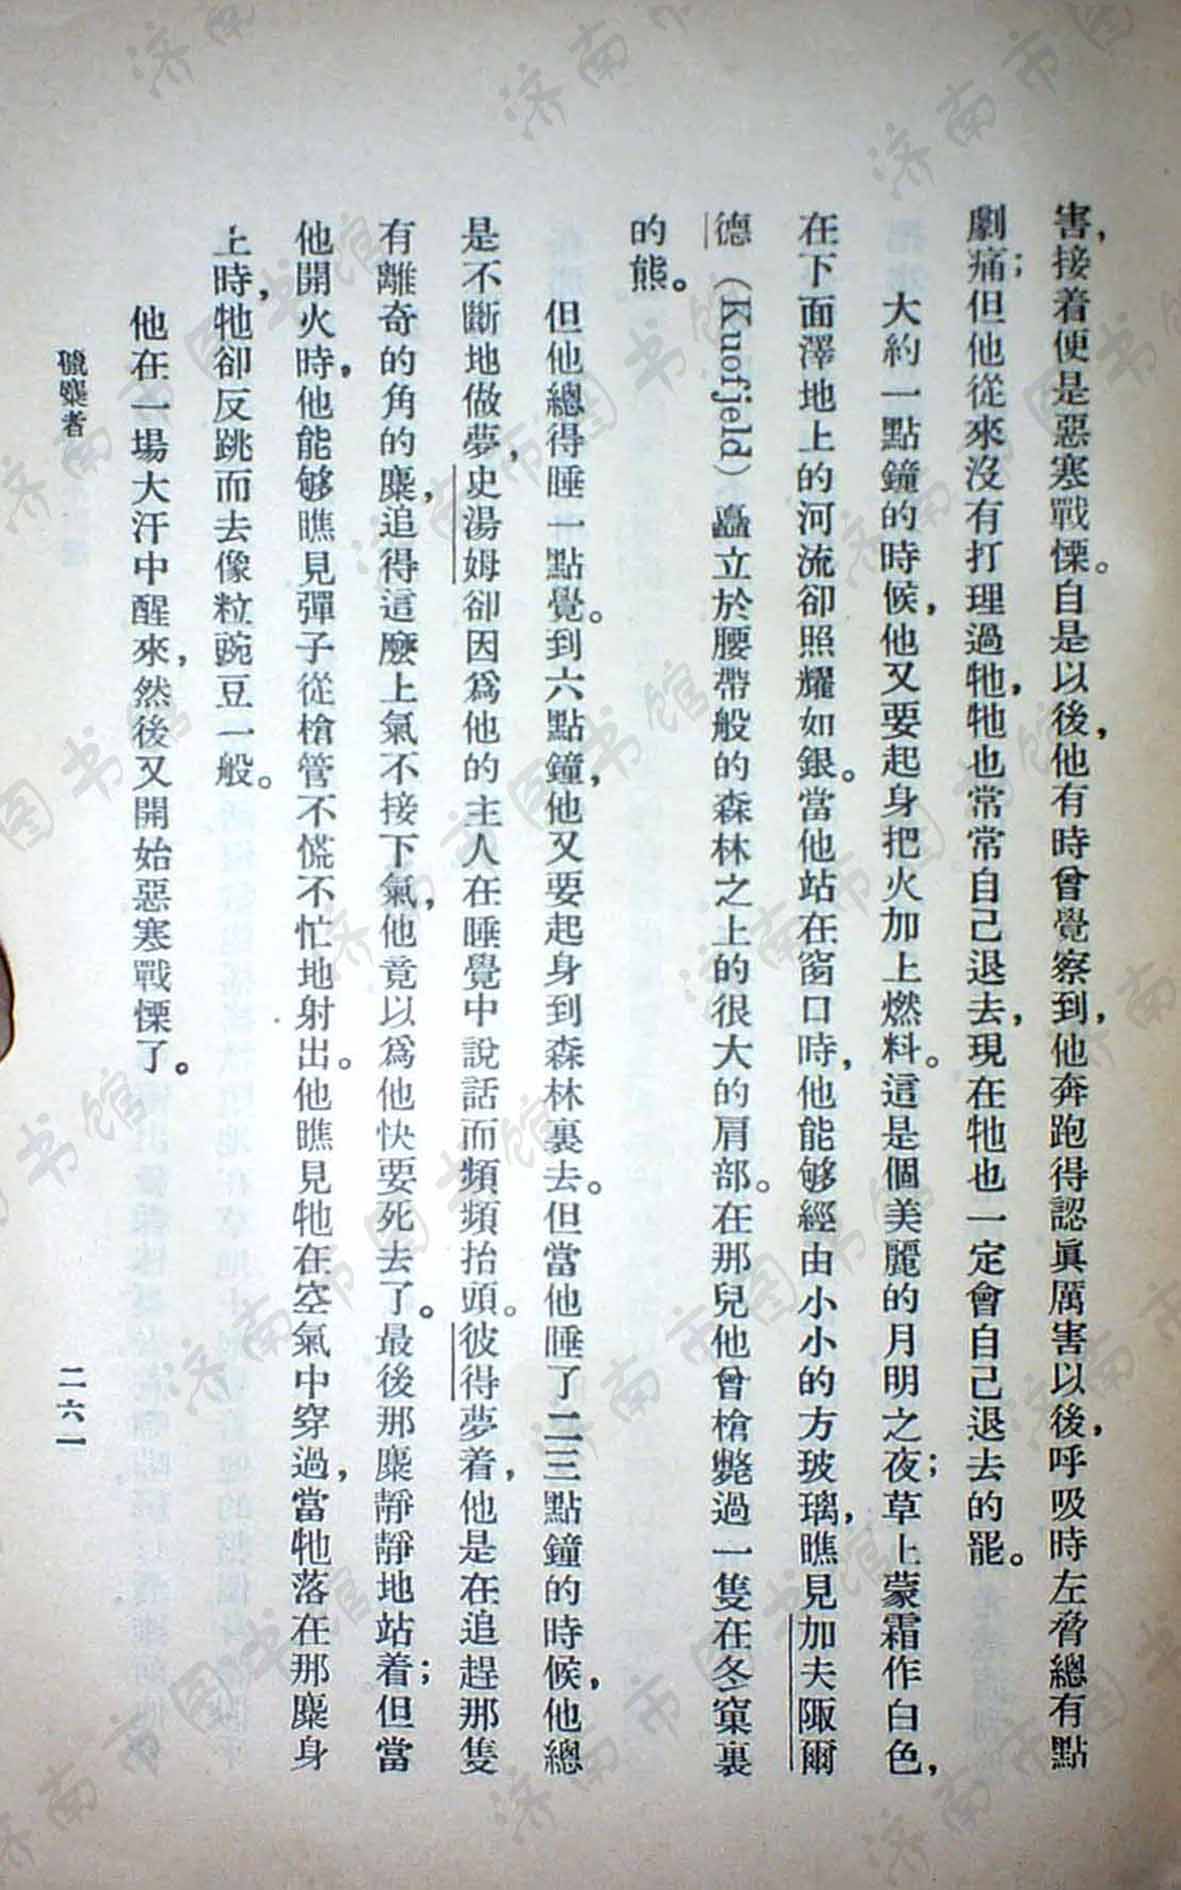 害，接着便是惡寒戰慄。自是以後，他有時曾覺察到，他奔跑得認眞厲害以後，呼吸時左脅總有點
劇痛；但他從來沒有打理過牠，牠也常常自己退去，現在牠也一定會自己退去的罷。
大約一點鐘的時候，他又要起身把火加上燃料。這是個美麗的月明之夜；草上蒙霜作白色，
在下面澤地上的河流卻照耀如銀。當他站在窗口時，他能够經由小小的方玻璃，瞧見加夫陬爾
德（Kuofjeld）矗立於腰帶般的森林之上的很大的肩部。在那兒他曾槍斃過一隻在冬窠裏
的熊。
但他總得睡一點覺。到六點鐘，他又要起身到森林裏去。但當他睡了二三點鐘的時候，他總
是不斷地做夢，史湯姆卻因爲他的主人在睡覺中說話而頻頻抬頭。彼得夢着，他是在追趕那隻
有離奇的角的麋，追得這麼上氣不接下氣，他竟以爲他快要死去了。最後那麋靜靜地站着；但當
他開火時，他能够瞧見彈子從槍管不慌不忙地射出。他瞧見牠在空氣中穿過，當牠落在那麋身
上時，牠卻反跳而去像粒豌豆一般。
他在一場大汗中醒來，然後又開始惡寒戰慄了。
獵麋者
二六一
济南市图书馆
济南市图书馆
济南市图书馆
济南市图书馆